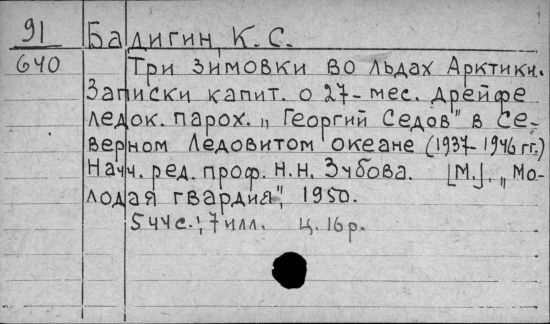 91 Бадигин, К. С.
Б40 Три зимовки во льдах Арктики.
Записки капит. о 27-мес. дрейфе
ледок. парох. „Георгий Седов" в Се-
верном Ледовитом океане (1937-1946 гг.)
Научн. ред. проф. Н.Н. Зубова. [М.]. „Мо-
лодая гвардия", 1950.
544с.; 7 илл. Ц. 16р.